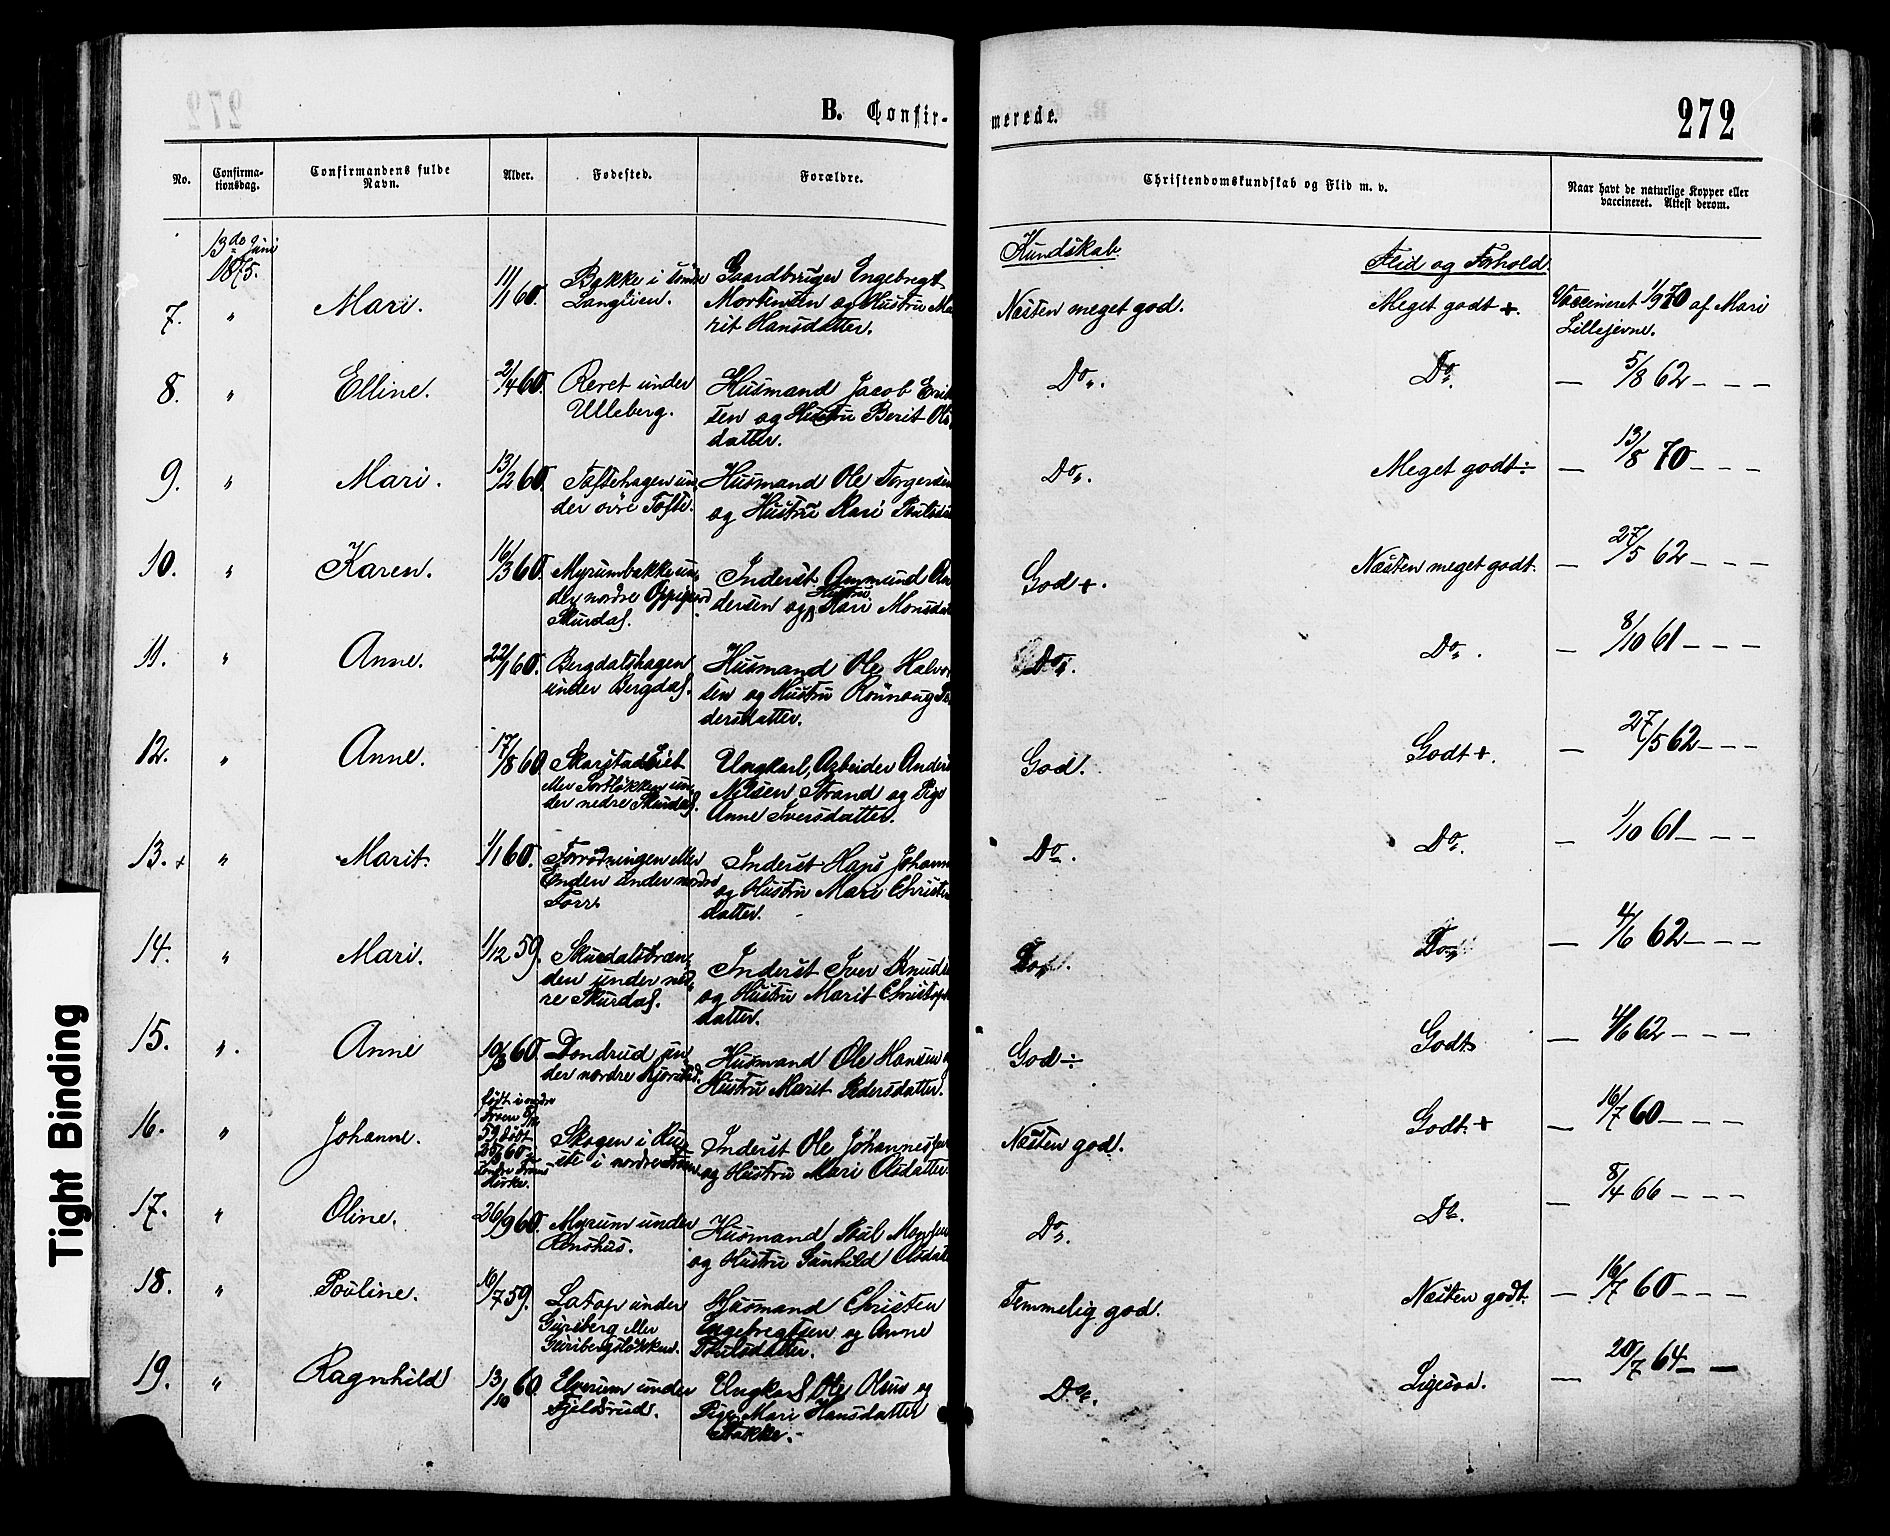 272
B. Confir-
merede.
No.
Confirma-
tionsdag.
Confirmandens fulde
Navn.
Alder.
Fødested.
Forældre.
Christendomskundskab og Flid m. v.
Naar havt de naturlige Kopper eller
vaccineret. Attest derom.
13de Juni
1875.
Kundskab.
Flid og Forhold.
7. " Mari. 11/1 60. Bakke i
Langlien. Gaardbruger Engebregt
Mortensen og Hustru Ma
rit Hansdatter. Næsten meget god. Meget godt +. Vaccineret 1/9 70 af Mari
Lillejevne.
8. " Elline. 2/4 60. Reret under
Ulleberg. Husmand Jacob Erik
sen og Hustru Berit Ols
datter. Do. Do. — 5/8 62 – – –
9. " Mari. 13/2 60. Toftehagen un
der övre Tofte. Husmand Ole Torgersen
og Hustru Mari Poulsdat Do. Meget godt ÷ — 13/8 70 – – –
10. " Karen. 16/3 60. Myrumbakke un
der nordre Oppigard
Skurdal. Inderst Ammund An
dersen og Hustru Mari Monsdat God +. Næsten meget godt. — 27/5 62 – – –
11. " Anne. 22/1 60. Bergdalshagen
under Bergdal. Husmand Ole Halvor
sen og Hustru Rönnaug Pe
dersdatter. Do. Do. — 8/10 61 – – –
12. " Anne. 17/8 60
eller Tortløkken un
der nedre Skurdal. Ungkarl, Arbeider Anders
Nilsen Strand og Pige
Anne Iversdatter. God. Godt +. — 27/5 62 – – –
13. + " Marit. 1/1 60. Torrödningen eller
Enden under nordre
Torre Inderst Hans Johann
og Hustru Mari Christen
datter. Do. Do. — 1/10 61 – – –
14. " Mari. 1/12 59. Skurdalstræn
den under ned
re Skurdal. Inderst Iver Knuds
og Hustru Marit Christoph
datter. Do. Do. — 4/6 62 – – –
15. " Anne 60. Dondrud un
der nordre Kjorstad. Husmand Ole Hansen og
Hustru Marit Pedersdatter. God ÷ Godt — 4/6 62 – – –
16. " Johanne. födt i nordre
Fron
59 döbt
60 i
Söndre Frons
Kirke. Skogen i Ru
ste i nordre Fron Inderst Ole Johannessen
og Hustru Mari Olsdatter. Næsten god. Godt + — 16/7 60 – – –
17. " Oline. 26/9 60. Myrum under
Lonshus. Husmand Poul Monsen
og Hustru Gunhild Olsdat Do. Do. — 8/4 66 – – –
18. " Pouline. 16/7 59. Latop under
Guriberg eller
Guribergsløkken. Husmand Christen
Engebregtsen og Anne
Poulsdatter. Temmelig god. Næsten godt. — 16/7 60 – – –
19. " Ragnhild 13/10 60 Elverum under
Fjeldsrud. Ungkarl Ole Olsen og
Pige Mari Hansdatter
Bakke. Do. Ligesaa. — 20/7 64 – –
Tight Binding